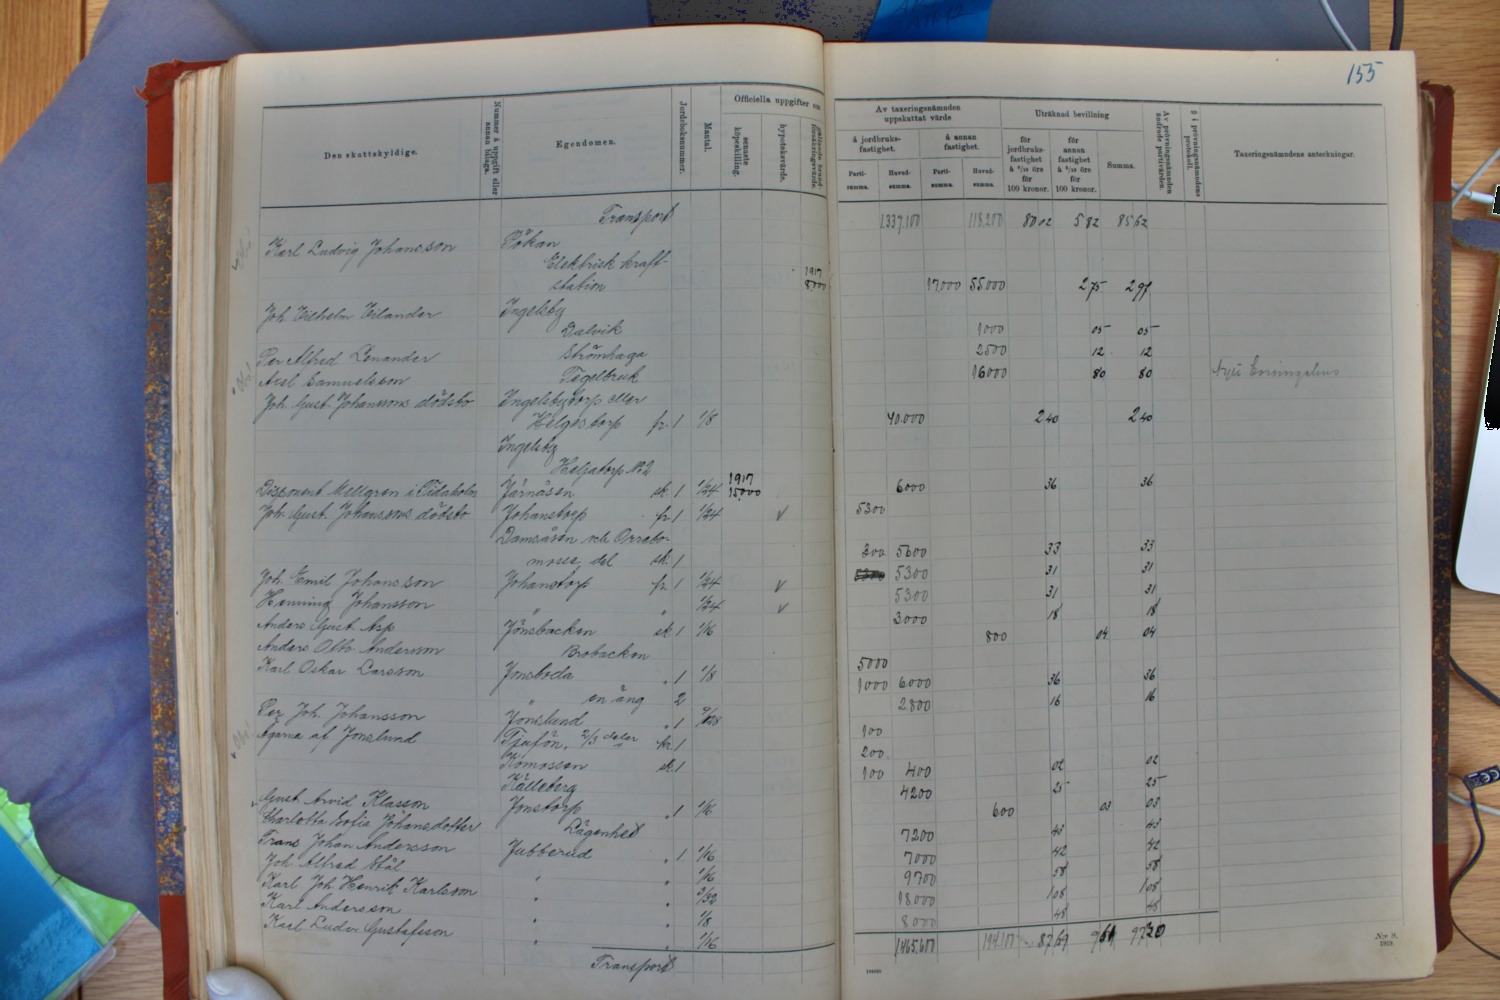 155
Den skattskyldige.
Nummer å uppgift eller annan bilaga.
Egendomen.
Jordeboksnummer.
Mantal.
Officiella uppgifter om
senaste köpeskilling.
hypoteksvärde.
gällande brandförsäkringsvärde.
Av taxeringsnämnden uppskattat värde
å jordbruksfastighet.
å annan fastighet.
Parti-summa.
Huvud-summa.
Parti-summa.
Huvud-summa.
Uträknad bevillning
för jordbruksfastighet à 6/10 öre för 100 kronor.
för annan fastighet à 5/10 öre för 100 kronor.
Summa.
Av prövningsnämnden ändrade partivärden.
§ i prövningsnämndens protokoll.
Taxeringsnämndens anteckningar.
Transport 1.337.100 118.200 80 02 5 82 85 62
Karl Ludvig Johansson Pökan
Elektrisk kraft-
station 1917 17.000 55.000 2 75
Joh. Vilhelm Ingelsby
Dalvik 1000 05 05
Per Alfred Lenander Strömhaga 2500 12 12
Axel Samuelsson Tegelbruk 16000 80 80
Joh. Gust. Johanssons dödsbo Ingelsbytorp eller
Helgestorp fr. 1 1/8 40.000 2 40 2 40
Ingelsby
Helgatorp No 2
Disponent Mellgren i Tidaholm Järnåsen sk. 1 1/24 1917 15,000 6000 36 36
Joh. Gust. Johanssons dödsbo Johanstorp fr. 1 1/24 V 5300
Damsåsen och Orrebo-
mosse, del sk. 1 300 5600 33 33
Joh. Emil Johansson Johanstorp fr. 1 1/24 V 5300 31 31
Henning Johansson " " 1/24 V 5300 31 31
Anders Gust. Asp Jönsbacken sk. 1 1/16 3000 18 18
Anders Otto Andersson Brobacken 800 04 04
Karl Oskar Larsson Jonsboda " 1 1/8 5000
" en äng 2 1000 6000 36 36
Per Joh. Johansson Jonslund " 1 2800 16 16
Ägarna af Jonslund Tjufön, 2/3 delar kr. 1 100
Komossen sk. 1 200
Källeberg 100 400 02 02
Gust. Arvid Klasson Jonstorp " 1 1/16 4200 25 25
Charlotta Sofia Johansdotter Lägenhet 600 03 03
Frans Johan Andersson Jubberud " 1 1/16 7200 43 43
Joh. Alfred Stål " " 1/16 7000 42 42
Karl Joh. Henrik Karlsson " " 9700 58 58
Karl Andersson " " 1/8 18000 1 08 1 08
Karl Ludv. Gustafsson " " 1/16 8000 48 48
Transport
Nr 9.
1919.